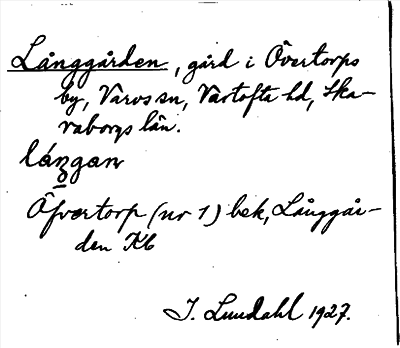 Långgården, gård i Övertorps
by, Vårvs sn, Vartofta hd, Ska-
raborgs län.
långan
Öfvertorp (nr 1) bek, Långgår-
den Kb
J. Lundahl 1927.